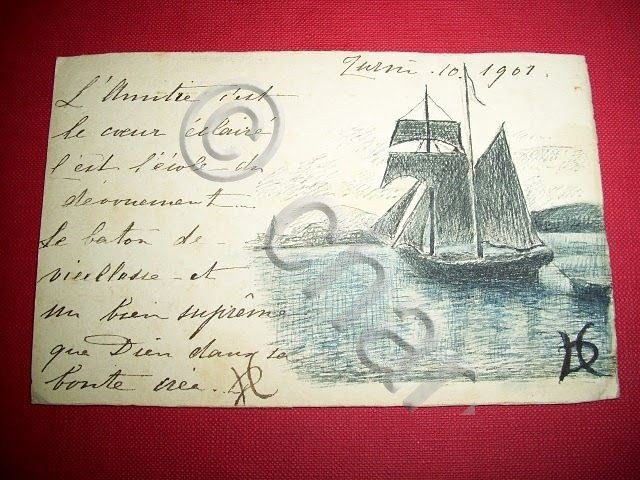 Turin . 10 . 1901 .
L'Amitié c'est
le cœur éclairé
c'est l'école du
dévouement
Le baton de
vieillesse et
un bien suprême
que Dieu dans sa
bonté crée.
©